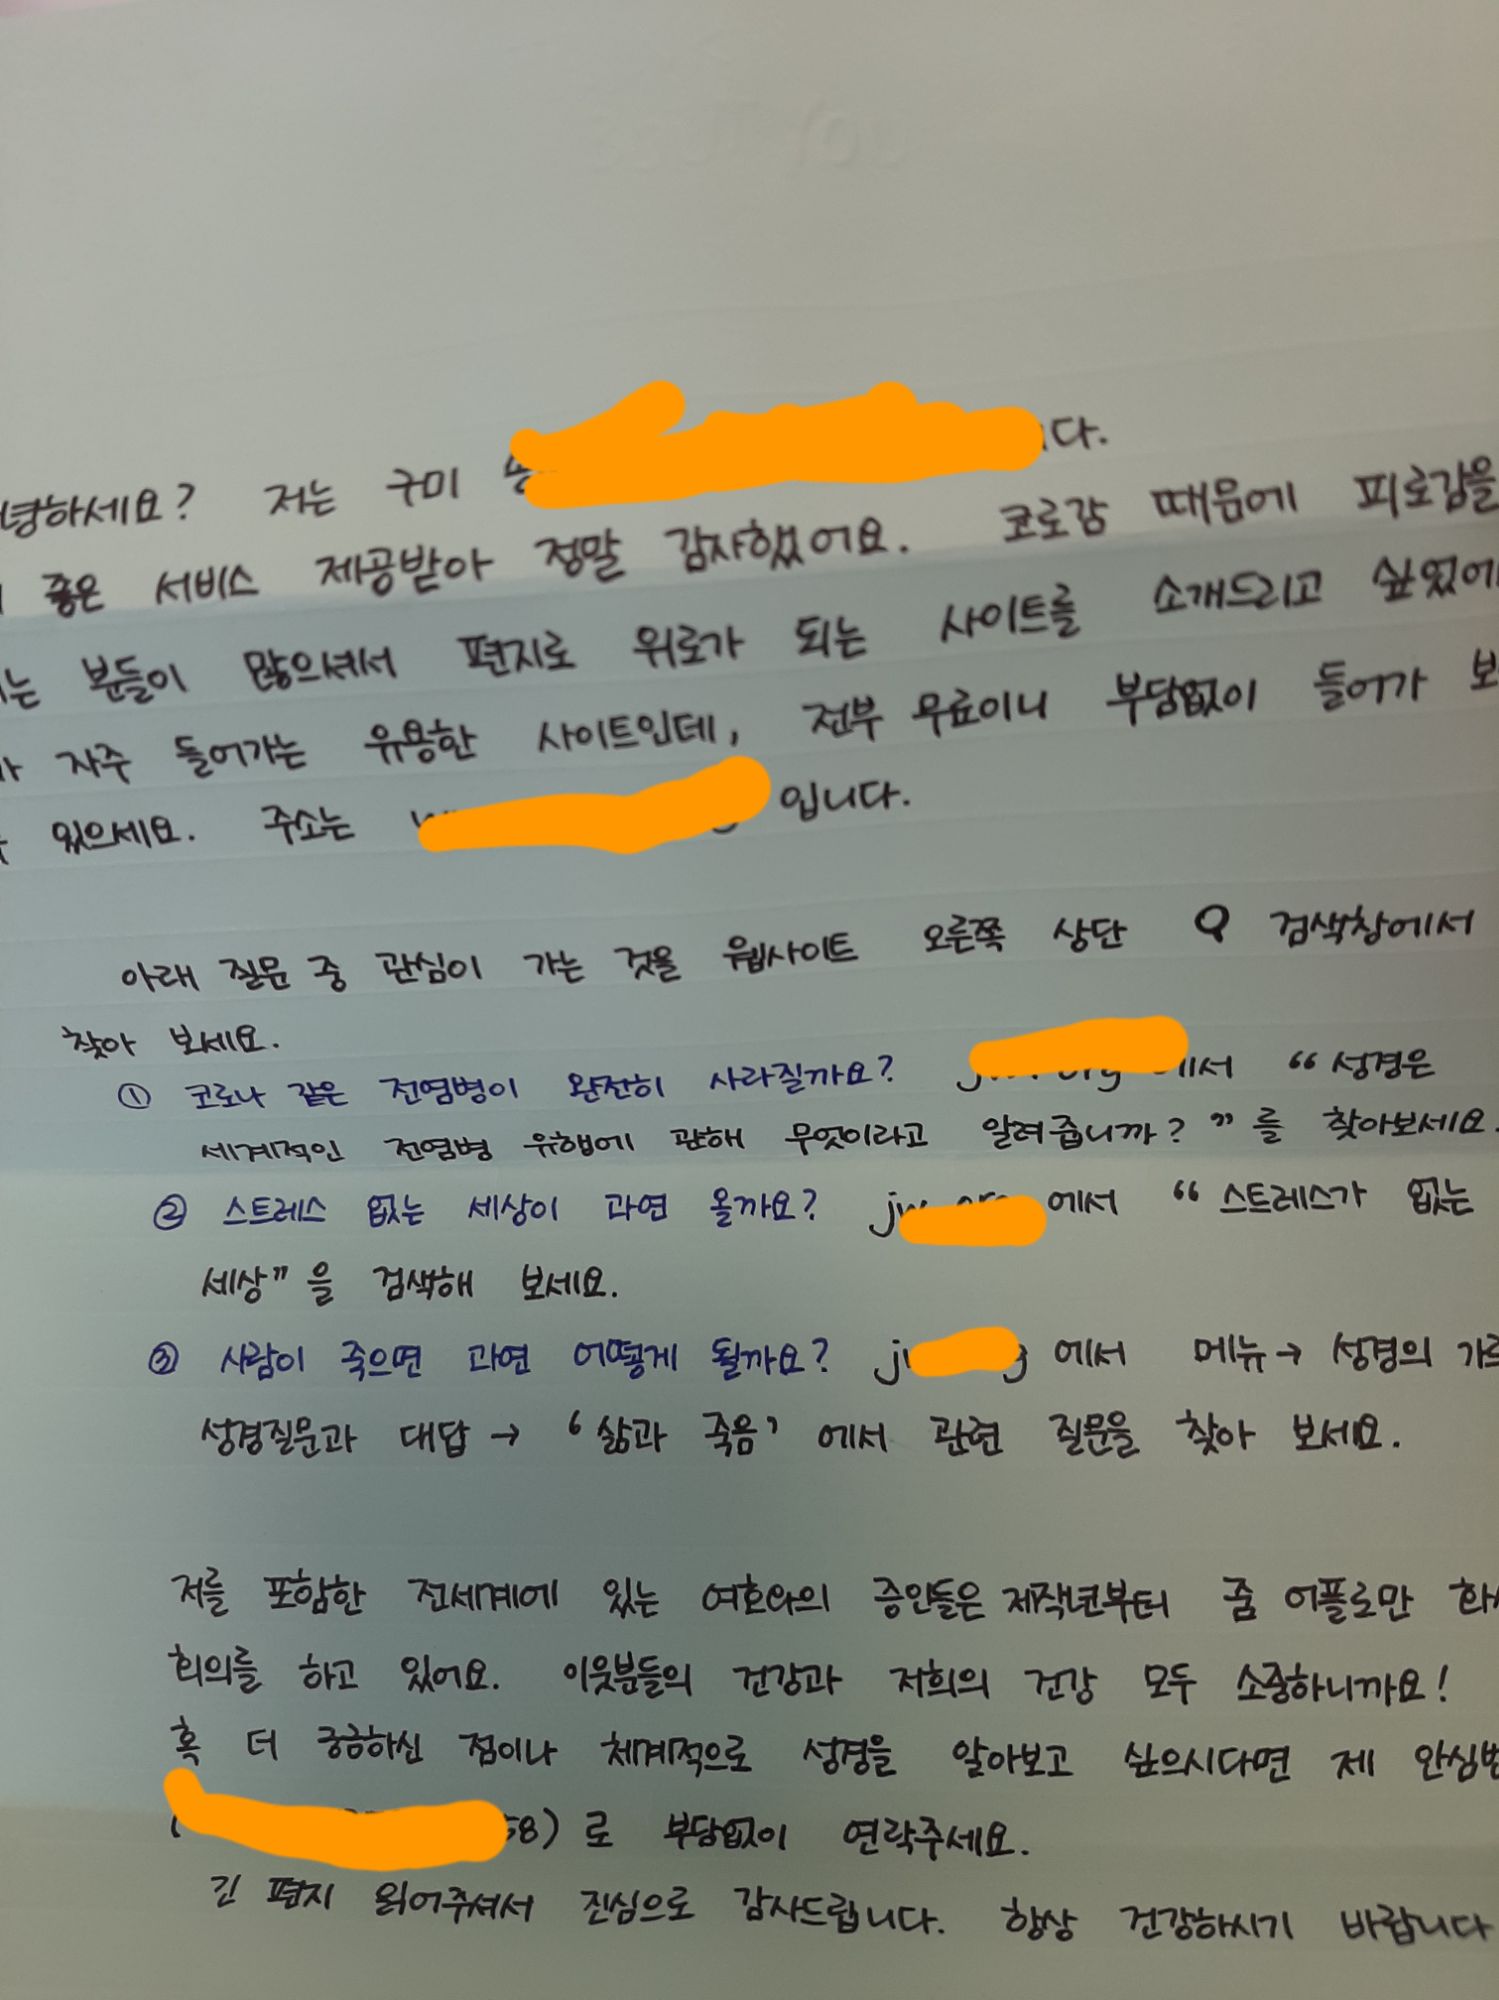 녕하세요? 저는 구미 다.
좋은 서비스 제공받아 정말 감사했어요. 코로감 때문에 피로감을
는 분들이 많으셔서 편지로 위로가 되는 사이트를 소개드리고 싶었어
자주 들어가는 유용한 사이트인데, 전부 무료이니 부담없이 들어가 보
있으세요. 주소는 입니다.
아래 질문 중 관심이 가는 것을 웹사이트 오른쪽 상단 검색창에서
찾아 보세요.
① 코로나 같은 전염병이 완전히 사라질까요? 에서 “성경은
세계적인 전염병 유행에 관해 무엇이라고 알려줍니까?”를 찾아보세요.
② 스트레스 없는 세상이 과연 올까요? 에서 “스트레스가 없는
세상”을 검색해 보세요.
③ 사람이 죽으면 과연 어떻게 될까요? 에서 메뉴→ 성경의 가르
성경질문과 대답→ ‘삶과 죽음’에서 관련 질문을 찾아 보세요.
저를 포함한 전세계에 있는 여호와의 증인들은 제작년부터 줌 어플로만 화
회의를 하고 있어요. 이웃분들의 건강과 저희의 건강 모두 소중하니까요!
혹 더 궁금하신 점이나 체계적으로 성경을 알아보고 싶으시다면 제 안심번
58)로 부담없이 연락주세요.
긴 편지 읽어주셔서 진심으로 감사드립니다. 항상 건강하시기 바랍니다